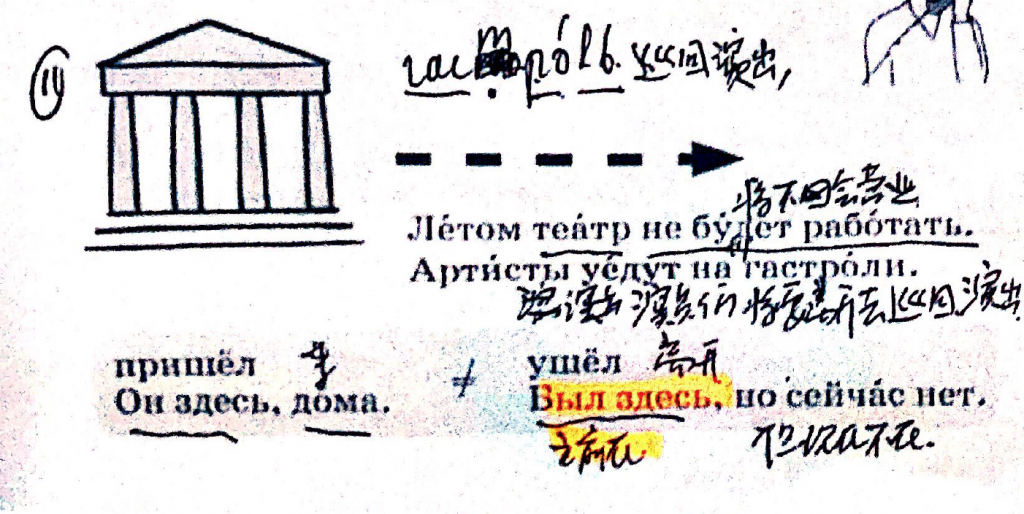 11
гастроль. 巡回演出,
将不会营业
Ле́том теа́тр не бу́дет рабо́тать.
Арти́сты уе́дут на гастро́ли.
演员们将要离开去巡回演出
пришёл
ушёл 离开
Он здесь, до́ма.
≠
Был здесь, но сейча́с нет.
之前在 但现在不在.